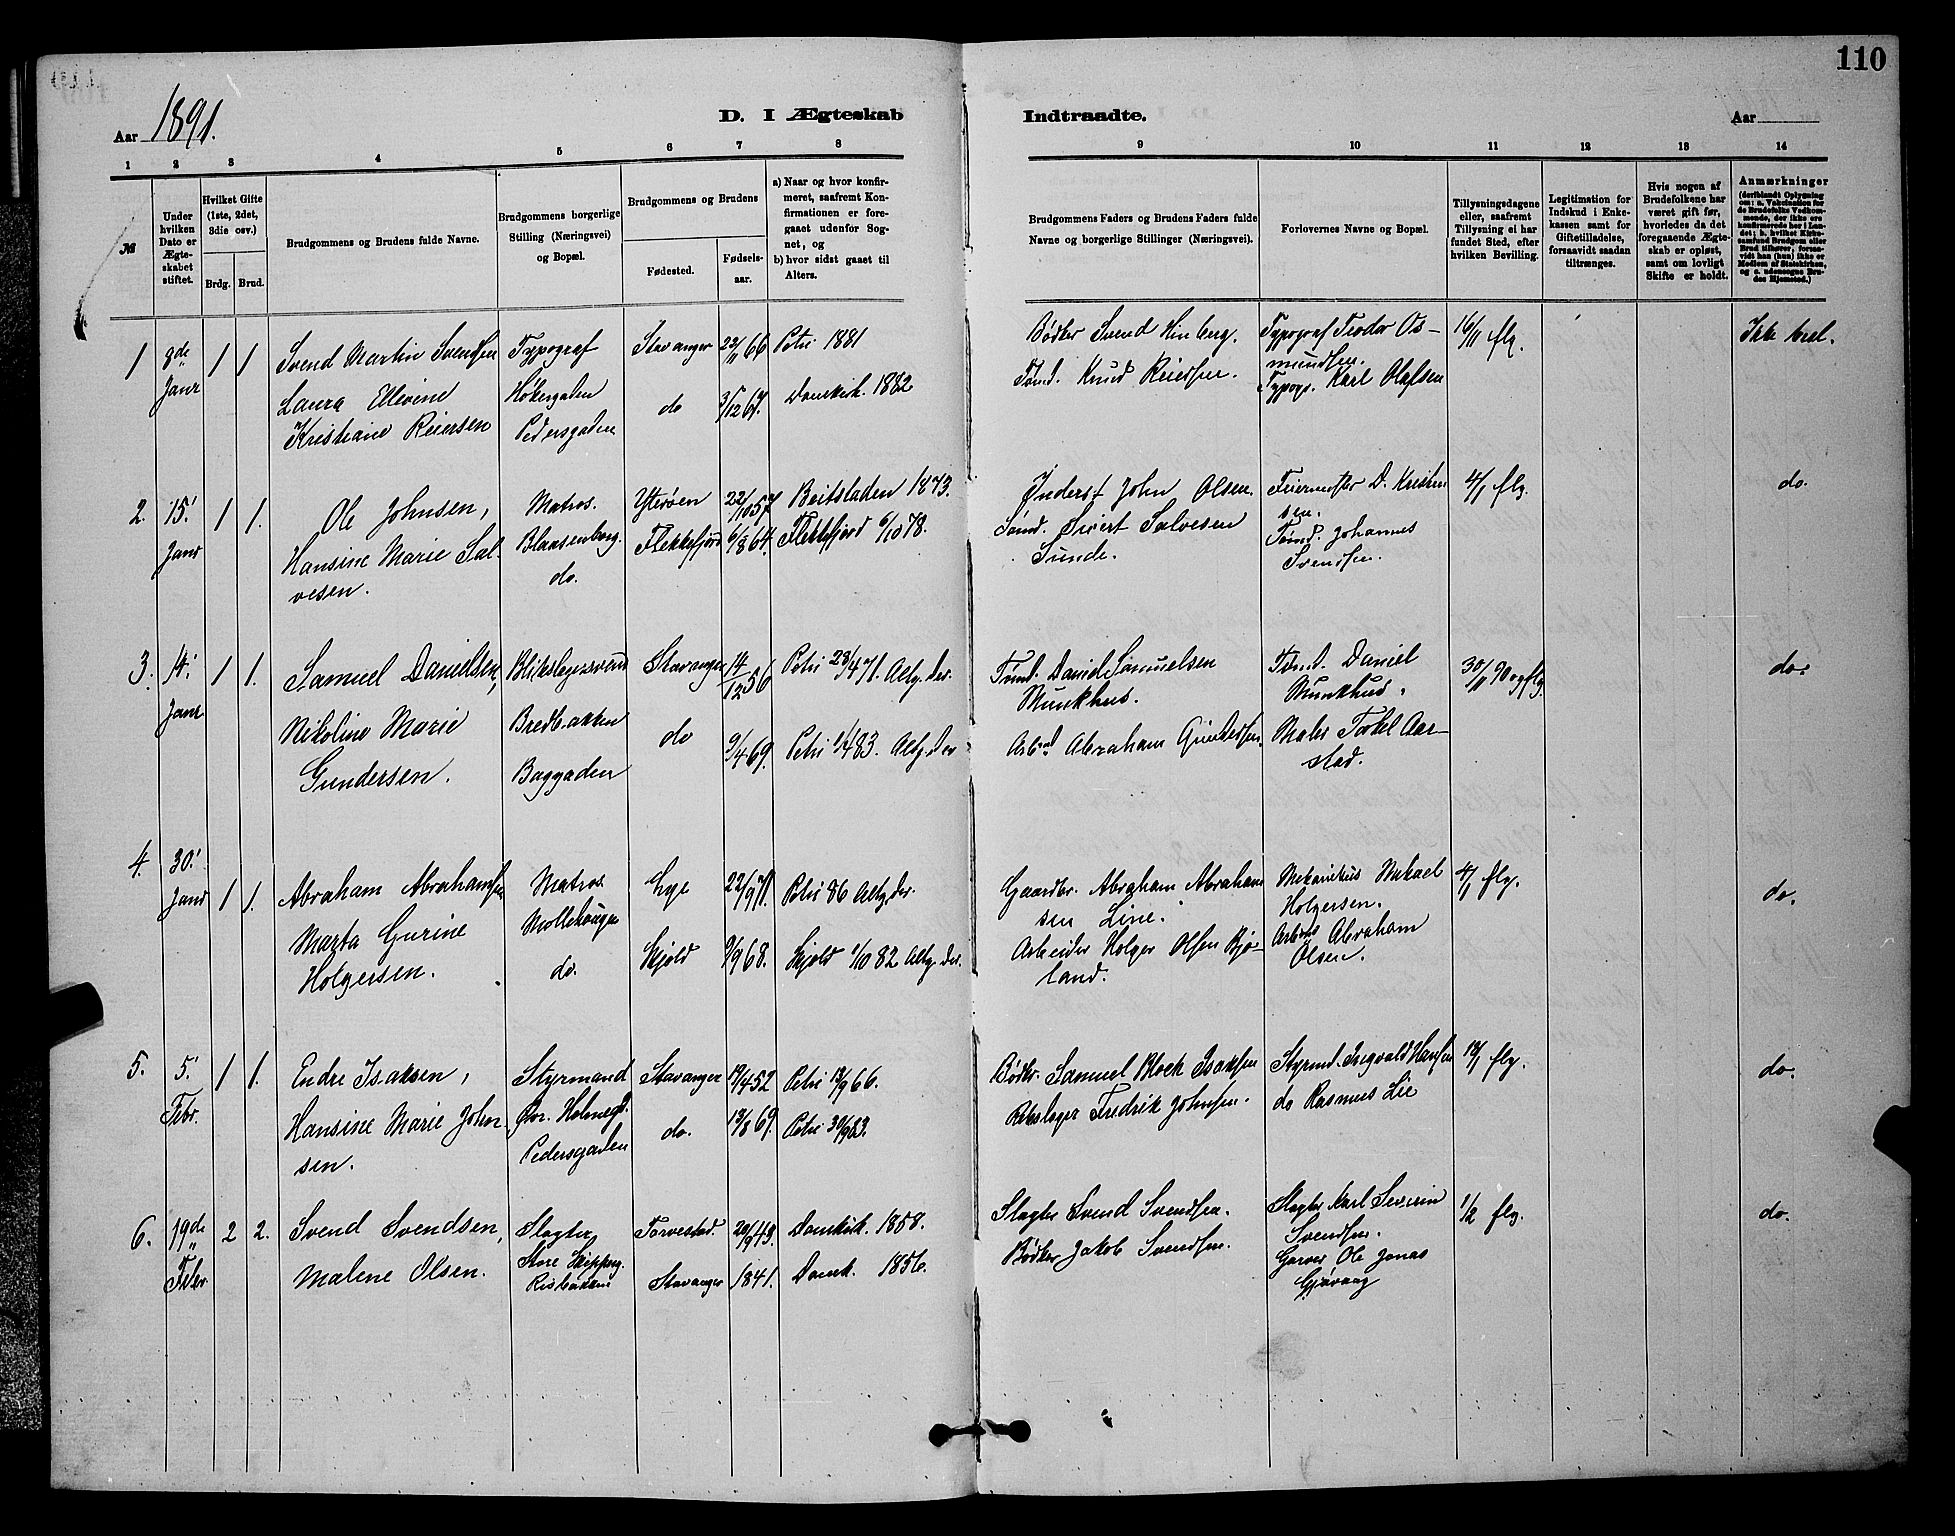 110
Aar 1891.
D. I Ægteskab Indtraadte.
Aar
1 2 3 4 5 6 7 8 9 10 11 12 13 14
№
Under hvilken Dato er Ægteskabet stiftet.
Hvilket Gifte (1ste, 2det, 3die osv.)
Brdg. Brud.
Brudgommens og Brudens fulde Navne.
Brudgommens borgerlige Stilling (Næringsvei) og Bopæl.
Brudgommens og Brudens
Fødested. Fødselsaar.
a) Naar og hvor konfirmeret, saafremt Konfirmationen er foregaaet udenfor Sognet, og
b) hvor sidst gaaet til Alters.
Brudgommens Faders og Brudens Faders fulde Navne og borgerlige Stillinger (Næringsvei).
Forlovernes Navne og Bopæl.
Tillysningsdagene eller, saafremt Tillysning ei har fundet Sted, efter hvilken Bevilling.
Legitimation for Indskud i Enkekassen samt for Giftetilladelse, forsaavidt saadan tiltrænges.
Hvis nogen af Brudefolkene har været gift før, hvorledes da det foregaaende Ægteskab er opløst, samt om lovligt Skifte er holdt.
Anmærkninger (deriblandt Oplysning om: a. Vaksination for de Brudefolks Vedkommende, der ikke ere konfirmerede her i Landet; b. hvilket Kirkesamfund Brudgom eller Brud tilhører, forsaavidt han (hun) ikke er Medlem af Statskirken, og c. udensogns Brudes Hjemsted.)
1 8de Janr 1 1 Svend Martin Svendsen Typograf Stavanger 22/11 66 Petri 1881 Bødker Svend Hinberg. Typograf Teodor Os- 16/11 flg. Ikke besl.
mundsen.
Laura Ellevine Høkergaden do 3/12 67. Domkirk. 1882 Tømd. Knud Reiersen. Typogr. Karl Olafsen
Kristiane Reiersen Pedersgaden
2. 15. Janr 1 1. Ole Johnsen, Matros. Yterøen 22/10 57 Beitstaden 1873. Inderst John Olsen. Feiermester D. Kristen 4/1 flg. do.
sen.
Hansine Marie Sal Blaasenborg. Flekkefjord 6/8 64. Flekkefjord 6/10 78. Tømd. Sivert Salvesen Tømd. Johannes
vesen. do. Sunde. Svendsen.
3. 14. Janr 1 1. Samuel Danielsen, Blikslagersvend Stavanger 14/12 56 Petri 23/4 71. Altg. der. Tømd. Daniel Samuelsen Tømd. Daniel 30/11 90 og flg. do.
Munkhus. Munkhus.
Nikoline Marie Bredbakken do 9/4 69. Petri 1/4 83. Altg. der Arbmd Abraham Gundersen. Maler Torkel Aar-
Gundersen. Baggaden stad.
4. 30. Janr 1 1. Abraham Abrahamsen Matros. Ege 22/9 71. Petri 86 Altg. der. Gaardbr. Abraham Abraham Mekanikus Mikael 4/1 flg. do.
sen Line. Holgersen.
Marta Gurine do. Skjold 9/9 68. Skjold 1/10 82 Altg. der. Arbeider Holger Olsen Bjø- Arbmd Abraham
Holgersen. land. Olsen.
5. 5. Febr. 1 1. Endre Isaksen, Styrmand Stavanger 19/4 52 Petri 13/9 66. Bødk. Samuel Block Isaksen Styrmd. Ingvald Hansen 18/1 flg. do.
Hansine Marie John Øvr. Holmegd. do. 13/8 69. Petri 30/9 83. Rebslager Fredrik Johnsen. do Rasmus Lie
sen. Pedersgaden
6. 19de Febr 2 2. Svend Svendsen, Slagter Torvestad. 20/9 43. Domkirk. 1858. Slagter Svend Svendsen. Slagter Karl Severin 1/2 flg. do.
Store Skipperg. Svendsen.
Malene Olsen. Risbakken Stavanger 1841. Domk. 1856. Bødker Jakob Svendsen. Garver Ole Jonas
Gjøvaag